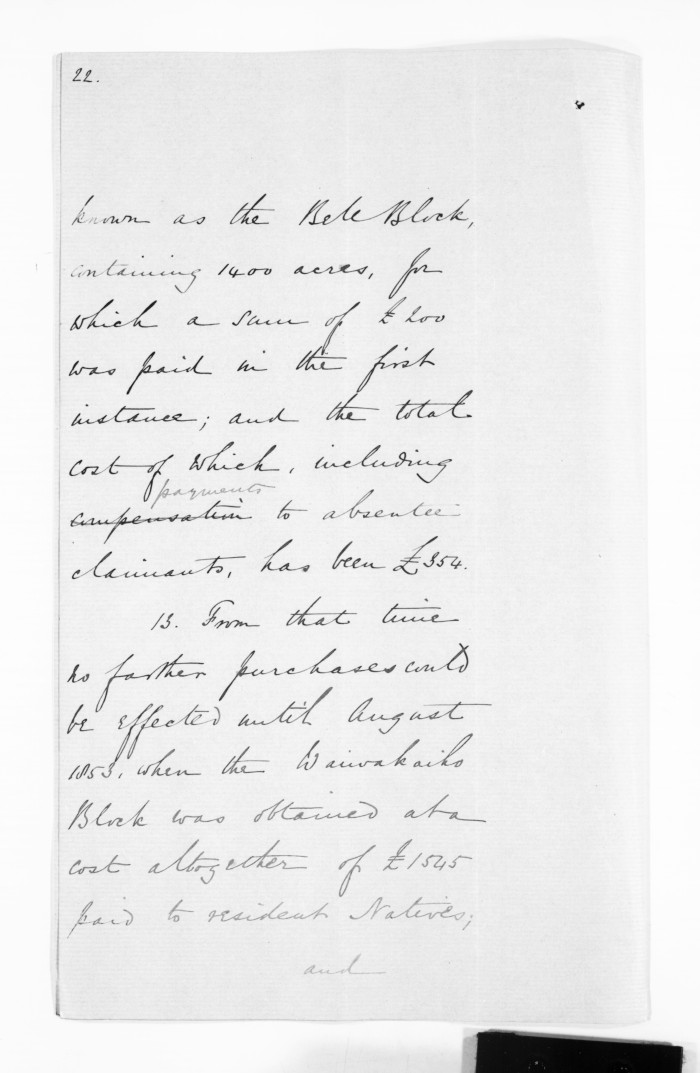 22.
known as the Bell Block,
containing 1400 acres, for
which a sum of £200
was paid in the first
instance; and the total
cost of which, including
payments
compensation to absentee
claimants, has been £354.
13. From that time
no farther purchases could
be effected until August
1853, when the Waiwakaiho
Block was obtained at a
cost altogether of £1545
paid to resident Natives;
and